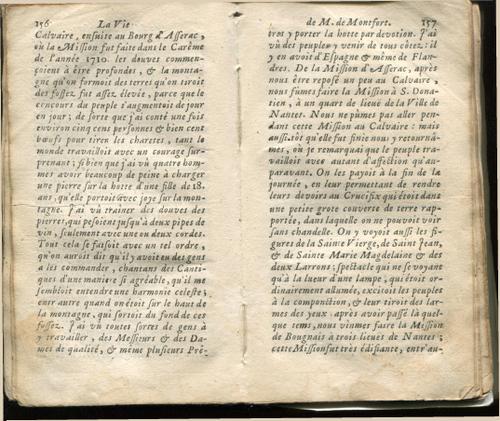 156 La Vie
Calvaire, ensuite au Bourg d'Asserac,
où la Mission fut faite dans le Carême
de l'année 1710. les douves commen-
çoient à être profondes, & la monta-
gne qu'on formoit des terres qu'on tiroit
des fossez fut assez élevée, parce que le
concours du peuple s'augmentoit de jour
en jour; de sorte que j'ai conté une fois
environ cinq cens personnes & bien cent
bœufs pour tirer les charetes, tant le
monde travailloit avec un courage sur-
prenant; si bien que j'ai vû quatre hom-
mes avoir beaucoup de peine à charger
une pierre sur la hotte d'une fille de 18.
ans, qu'elle portoit avec joye sur la mon-
tagne. J'ai vû trainer des douves des
pierres, qui pesoient jusqu'à deux pipes de
vin, seulement avec une ou deux cordes.
Tout cela se faisoit avec un tel ordre,
qu'on auroit dit qu'il y avoit eu des gens
à les commander, chantans des Canti-
ques d'une maniere si agréable, qu'il me
sembloit entendre une harmonie celeste;
entr'autre quand on étoit sur le haut de
la montagne, qui sortoit du fond de ces
fossez. J'ai vû toutes sortes de gens à
y travailler, des Messieurs & des Da-
mes de qualité, & même plusieurs Prê-
de M. de Montfort. 157
tres y porter la hotte par devotion. J'ai
vû des peuples y venir de tous côtez: il
y en avoit d'Espagne & même de Flan-
dres. De la Mission d'Asserac, après
nous être reposé un peu au Calvaire,
nous fumes faire la Mission à S. Dona-
tien, à un quart de lieuë de la Ville de
Nantes. Nous ne pûmes pas aller pen-
dant cette Mission au Calvaire: mais
aussi-tôt qu'elle fut finie nous y retournâ-
mes, où je remarquai que le peuple tra-
vailloit avec autant d'affection qu'au-
paravant. On les payoit à la fin de la
journée, en leur permettant de rendre
leurs devoirs au Crucifix qui étoit dans
une petite grote couverte de terre rap-
portée, dans laquelle on ne pouvoit voir
sans chandelle. On y voyoit aussi les fi-
gures de la Sainte Vierge, de Saint Jean,
& de Sainte Marie Magdelaine & des
deux Larrons; spectacle qui ne se voyant
qu'à la lueur d'une lampe, qui étoit or-
dinairement allumée, excitoit les peuples
à la componction, & leur tiroit des lar-
mes des yeux: après avoir passé là quel-
que tems, nous vinmes faire la Mission
de Bouguais à trois lieues de Nantes;
cette Mission fut très édifiante, entr'au-